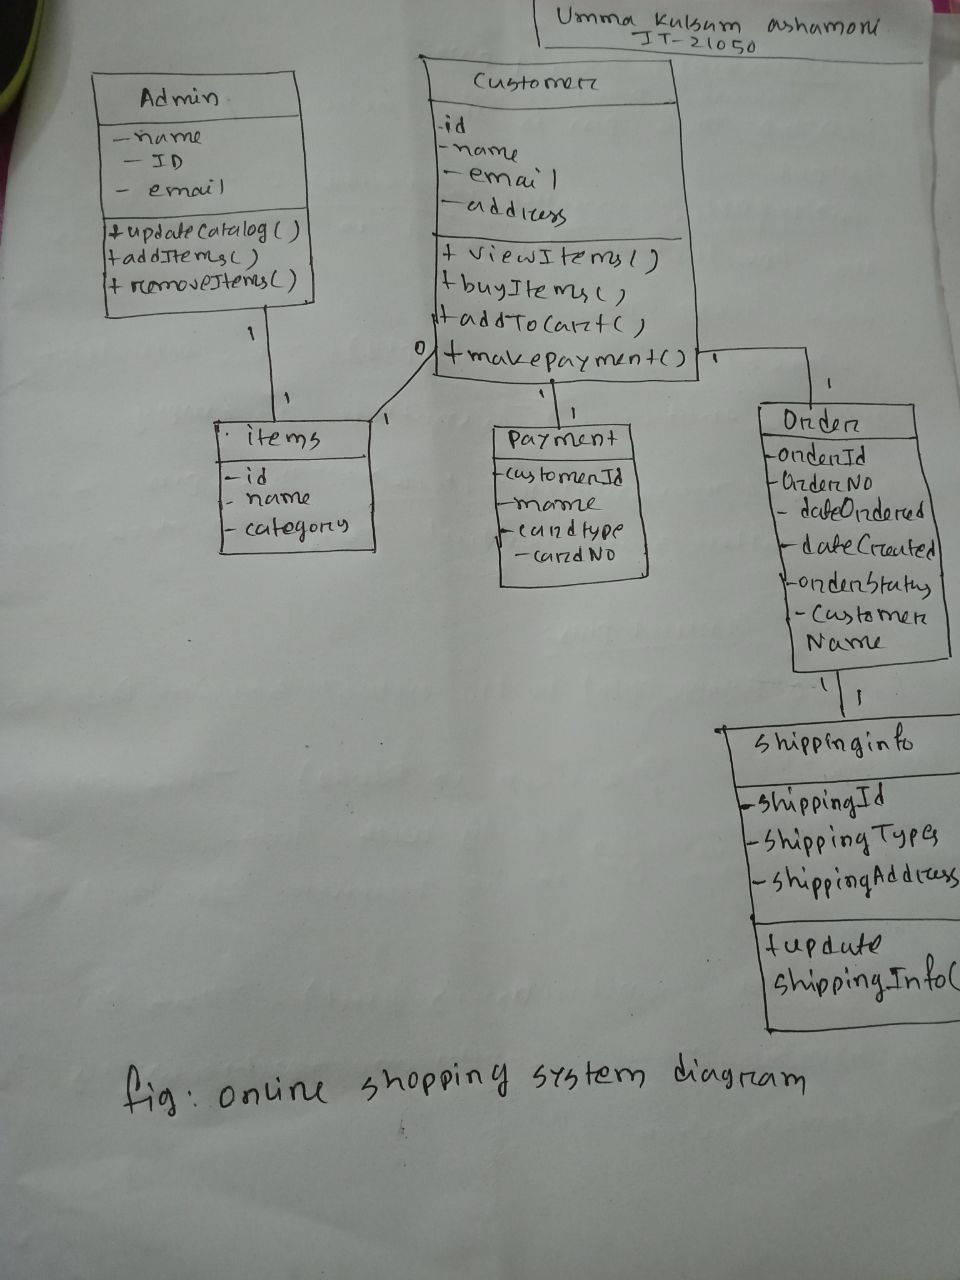 Umma Kulsum ashamoni
IT-21050
Admin
- name
- ID
- email
+ updateCatalog()
+ addItems()
+ removeItems()
Customer
-id
-name
-email
-address
+ viewItems()
+ buyItems()
+ addToCart()
+ makepayment()
1
1
0
1
1
1
1
1
items
- id
- name
- category
payment
-customerId
-name
-cardtype
-cardNo
Order
-orderId
-OrderNo
- dateOrdered
- dateCreated
-orderStatus
- Customer
Name
1
1
shippinginfo
-shippingId
-shippingTypes
-shippingAddress
+update
shippingInfo(
fig: online shopping system diagram